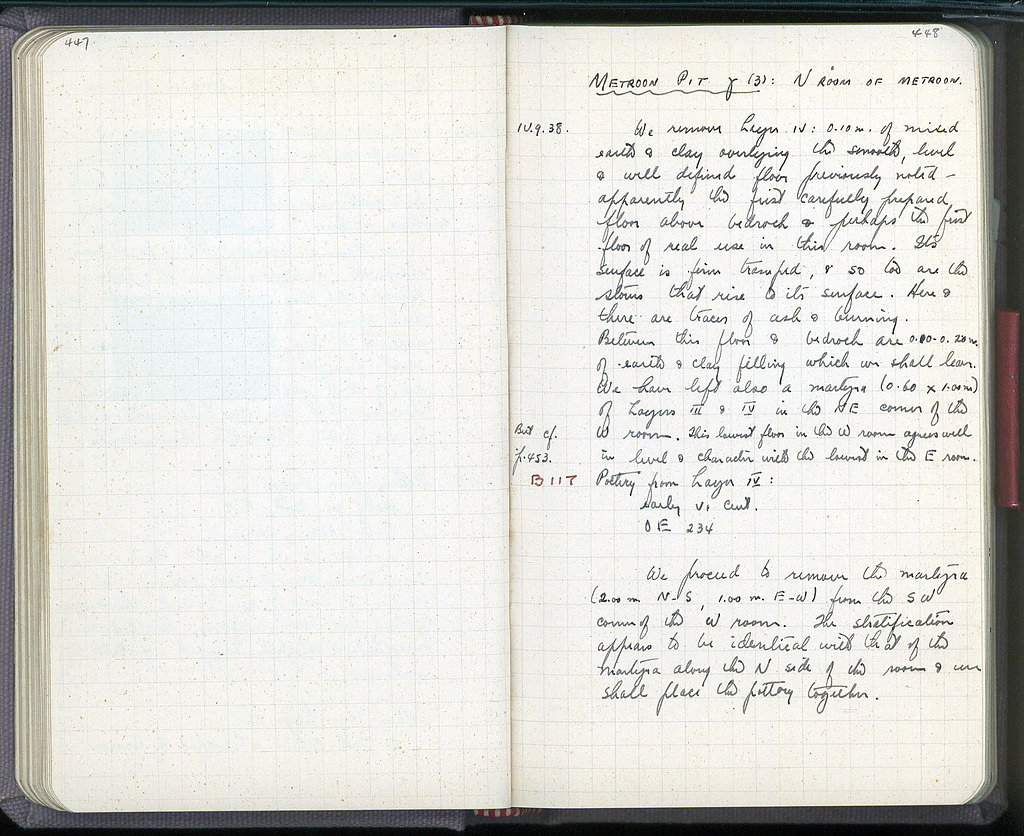 447
448
METROON PIT γ (3): N ROOM OF METROON.
IV.9.38. We remove Layer IV: 0.10 m. of mixed
earth & clay overlying the smooth, level
& well defined floor previously noted –
apparently the first carefully prepared
floor above bedrock & perhaps the first
floor of real use in this room. Its
surface is firm tramped, & so too are the
stones that rise to its surface. Here &
there are traces of ash & burning.
Between this floor & bedrock are 0.20 m.
of earth & clay filling which we shall leave.
We have left also a martyra (0.60 x 1.00 m)
of Layers III & IV in the NE corner of the
But cf. W room. This lowest floor in the W room agrees well
p. 453. in level & character with the lowest in the E room.
B 117 Pottery from Layer IV:
early V. cent.
OE 234
We proceed to remove the martyra
(2.00 m. N-S, 1.00 m. E-W) from the SW
corner of the W room. The stratification
appears to be identical with that of the
martyra along the N side of the room & we
shall place the pottery together.